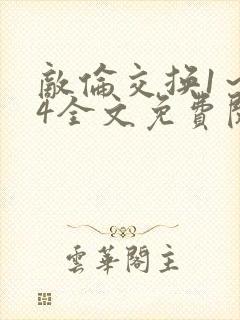 敵倫交换1～
4全文免費閱
雲華閣主